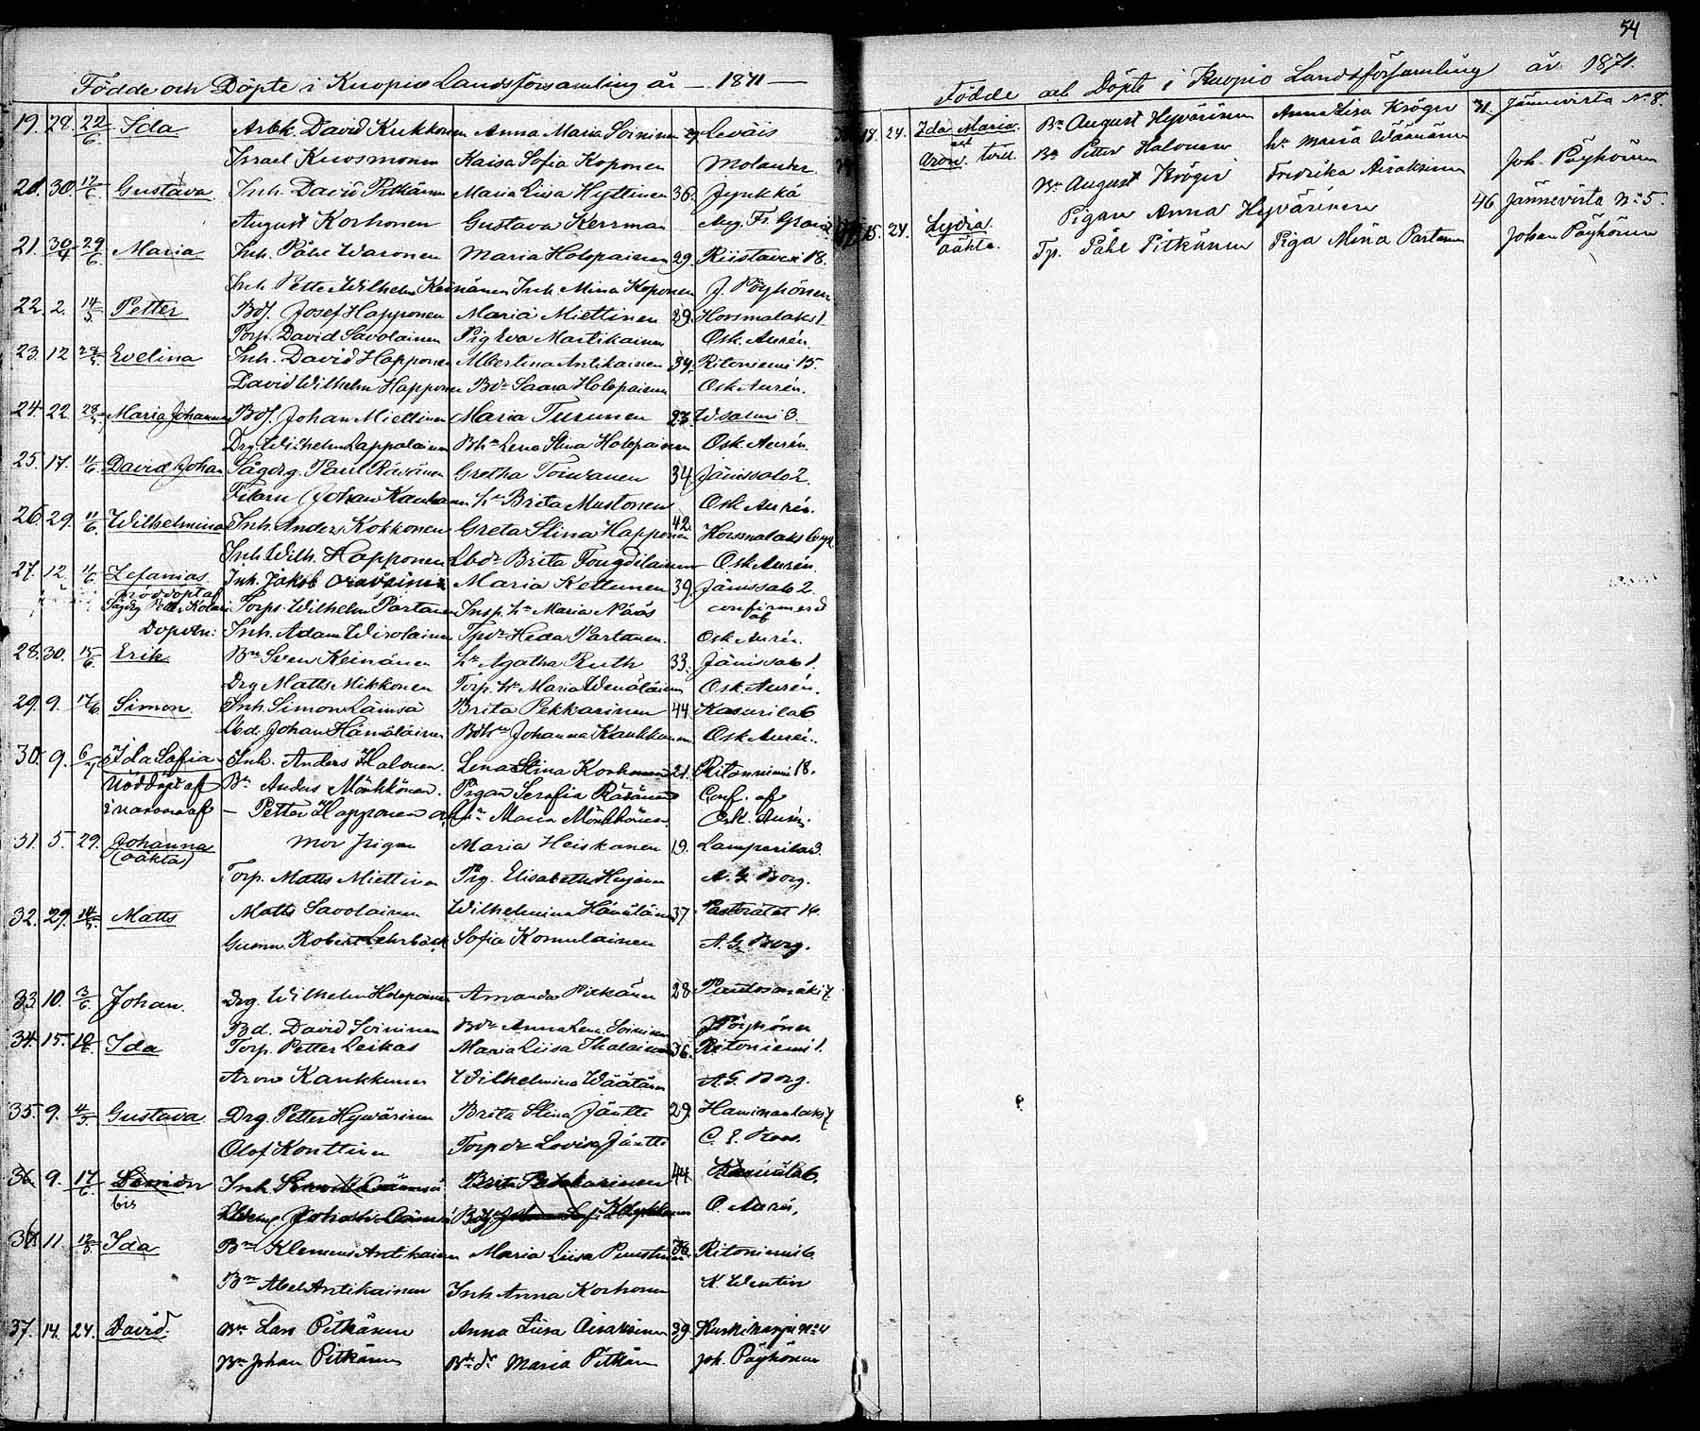 54
Födde och Döpte i Kuopio Landsförsamling år — 1871 —
19. 29. 22/6 Ida Arbk. David Kukkonen Anna Maria Soininen 29 Leväis
Israel Kuosmonen Kaisa Sofia Koponen Molander
20. 30. 12/6 Gustava Inh. David Pitkänen Maria Liisa Hyttinen 36. Jynkkä
August Korhonen Gustava Kerrman Aug. Fr. Granit
21. 30/4 29/6 Maria Inh. Påhl Waronen Maria Holopainen 29. Riistavesi 18.
Inh. Petter Wilhelm Keinänen Inh. Mina Koponen J. Pöyhönen
22. 2. 14/5 Petter Bdf. Josef Happonen Maria Miettinen 29. Horsmalaks 1
Torp. David Savolainen Pig Eva Martikainen Osk. Aurén.
23. 12 29/5 Evelina Inh. David Happonen Albertina Antikainen 34. Ritoniemi 15.
David Wilhelm Happonen Bdr Saara Holopainen Osk Aurén.
24. 22. 28/5 Maria Johanna Bdf. Johan Miettinen Maria Turunen 23 Wsalmi 3
Drg Wilhelm Lappalainen Bhn Lena Stina Holopainen Osk Aurén.
25. 17. 11/6 David Johan Sågdrg. Paul Räsänen Gretha Toivanen 34 Jänissalo 2.
Filaru Johan hr Brita Mustonen Osk Aurén.
26. 29. 11/6 Wilhelmina Inh. Anders Kokkonen Greta Stina Happonen 42. Horsmalaks
Inh. Wilh. Happonen Lbdr Brita Fougdilainen Osk Aurén.
27. 12. 11/6 Zefanias Inh. Jakob Maria Kettunen 39. Jänissalo 2.
nöddöpt af Petter Torps. Wilhelm Partanen Insp. hr Maria Nääs confirmerd af
Dopvtn: Inh. Adam Wirolainen Tpdr Heda Partanen. Osk Aurén.
28. 30. 15/6 Erik Bn Sven Keinänen hr Agatha Ruth 33. Jänissalo 1.
Drg Matts Mikkonen Torp. hr Maria Wenäläinen Osk Aurén.
29. 9. 17/6 Simon Inh. Simon Länsä Brita Pekkarinen 44 Kasurila 6
Johan Hämäläinen Johanna Kaukkonen Osk Aurén.
30. 9. 6/7 Ida Sofia Inh. Anders Halonen. Lena Stina Korhonen 21. Ritoniemi 18.
Nöddöpt af Bn Anders Mönkkönen. Pigan Serafia Räsänen Conf. af
i närvaro af — Petter Happonen och Maria Mönkkönen Osk. Aurén.
31. 5. 29. Johanna (oäkta) mor pigan Maria Heiskanen 19. Lamperila 3.
Torp. Matts Miettinen Pig. Elisabeth A. G. Borg.
32. 29. 14/5 Matts Matts Savolainen Wilhelmina Hämäläinen 37 Pastoratet 14.
Robert Lehrbäck Sofia Komulainen A. G. Borg.
33. 10. 3/6 Johan. Drg. Wilhelm Holopainen Amanda Pitkänen 28 Puutosmäki 7
Bd. David Soininen Bdr Anna Lena Soininen J. Pöyhönen
34. 15. Ida Torp. Petter Leikas Maria Liisa Ihalainen 36. Ritoniemi 1.
Aron Kaukkunen Wilhelmina Väätänen A. G. Borg.
35. 9. 4/5 Gustava Drg. Petter Hyvärinen Brita Stina Jäntti 29. Haminanlaks 7
Olof Konttinen Torp dr Lovisa Jäntti C. E. Roos.
36 9. 17/6 bis Inh. Brita Pekkarinen 44 Kasurila 6.
O. Aurén.
36. 11. 12/5 Ida Bn Klemens Antikainen Maria Liisa 36. Ritoniemi 6.
Bn Abel Antikainen Inh Anna Korhonen K. Wentin
37. 14. 24. David. Bn Lars Pitkänen Anna Liisa Airaksinen 39. Kurkiharju No 4
Bn Johan Pitkänen Bdr Maria Pitkänen Joh. Pöyhönen
Födde och Döpte i Kuopio Landsförsamling år 1871.
18. 24. Ida Maria. Bn August Hyvärinen Anna Lisa Kröger 31. Jännevirta No 8.
och Aron. tvill. Bn Petter Halonen hr Maria Väänänen Joh. Pöyhönen
Bn August Kröger Fredrika Airaksinen
15. 24. Lydia oäkta. Pigan Anna Hyvärinen 46 Jännevirta No 5.
Tp. Påhl Pitkänen Piga Mina Partanen Johan Pöyhönen